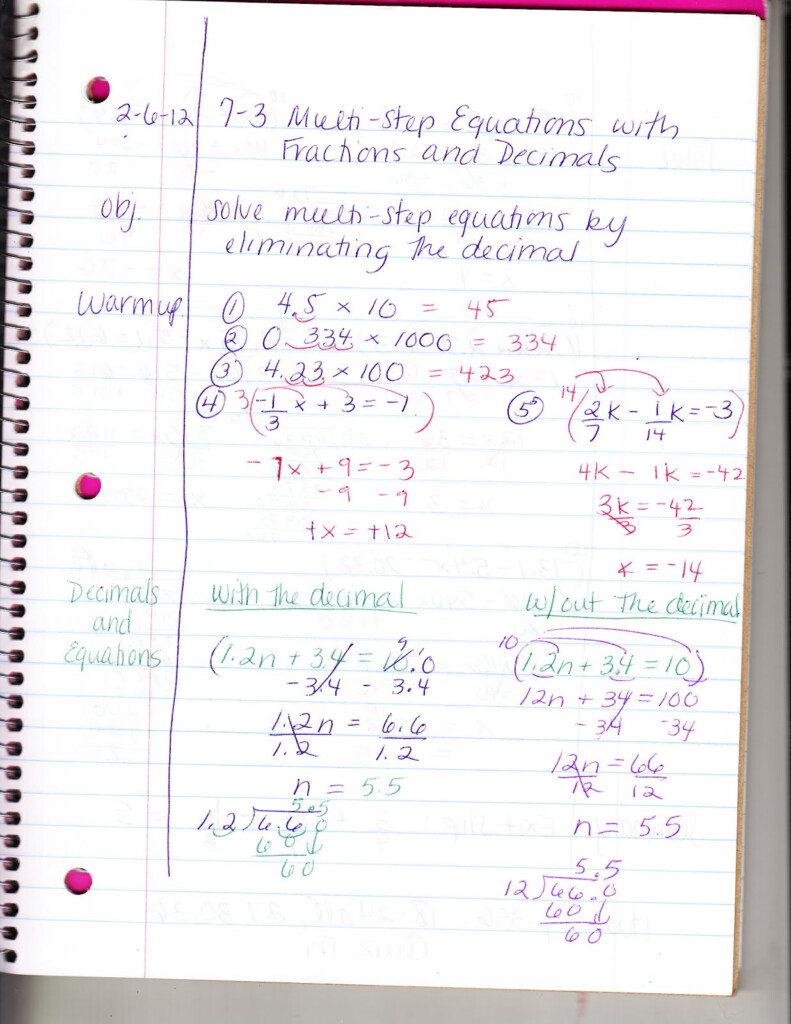 2-6-12 7-3 Multi-step Equations with
Fractions and Decimals
Obj. solve multi-step equations by
eliminating the decimal
Warmup. ① 4.5 × 10 = 45
② 0.334 × 1000 = 334
③ 4.23 × 100 = 423
④ 3(-1/3 x + 3 = -1) ⑤ 14(2/7 k - 1/14 k = -3)
-1x + 9 = -3 4k - 1k = -42
-9 -9 3k/3 = -42/3
+x = +12
k = -14
Decimals and Equations
With the decimal
(1.2n + 3.4 = 10.0
9 1
-3.4 - 3.4
1.2n/1.2 = 6.6/1.2
n = 5.5
5.5
1.2)6.6 0
6 0↓
6 0
w/out the decimal
10(1.2n + 3.4 = 10)
12n + 34 = 100
-34 -34
12n/12 = 66/12
n = 5.5
5.5
12)66.0
60↓
60